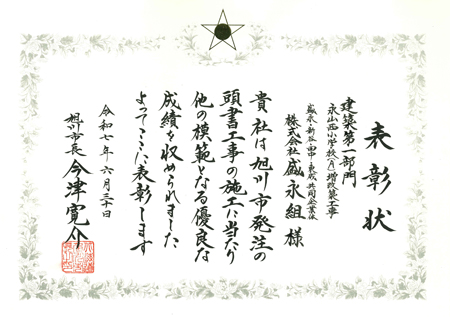 表彰状
建築第一部門
永山西小学校(A)増改築工事
盛永・新谷・田中・東成 共同企業体
株式会社盛永組 様
貴社は旭川市発注の
頭書工事の施工に当たり
他の模範となる優良な
成績を収められました
よってここに表彰します
令和七年六月三十日
旭川市長 今津寛介